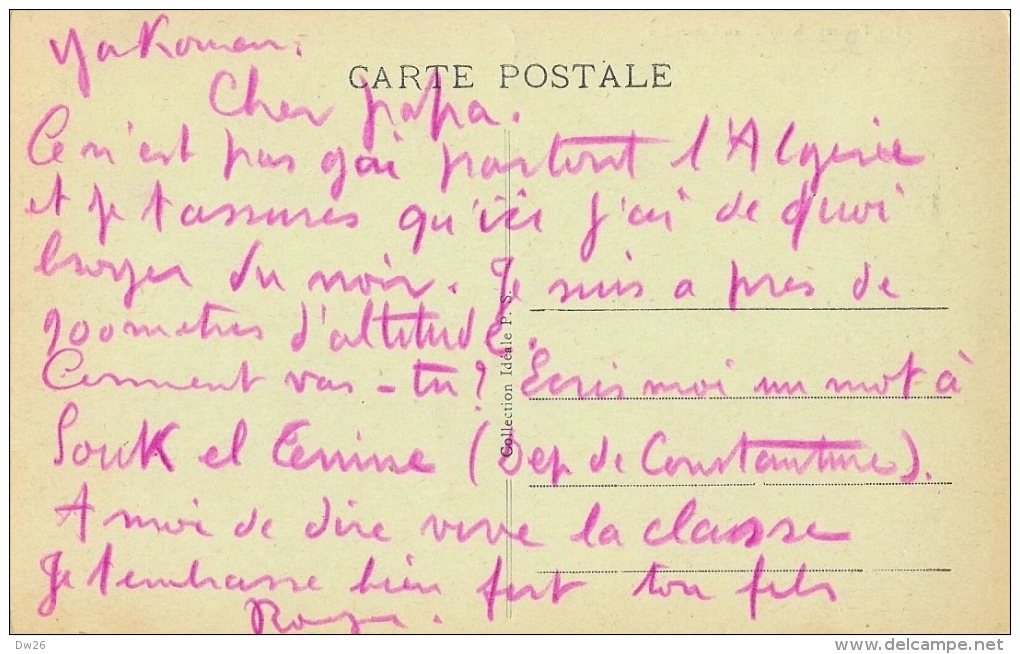 Yakouren.
CARTE POSTALE
Cher papa.
Ce n'est pas gai partout l'Algerie
et je t'assures qu'ici j'ai de quoi
broyer du noir. Je suis a pres de
900 metres d'altitude.
Comment vas-tu? Ecris moi un mot à
Souk el Tenine (Dep. de Constantine).
A moi de dire vive la classe
Je t'embrasse bien fort ton fils
Roger.
Collection Idéale P. S.
Dw26
www.delcampe.net